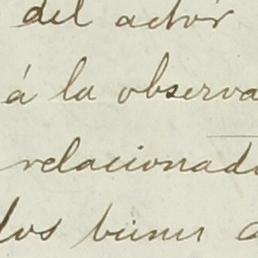 del actor
á la observa
relacionad
los bienes